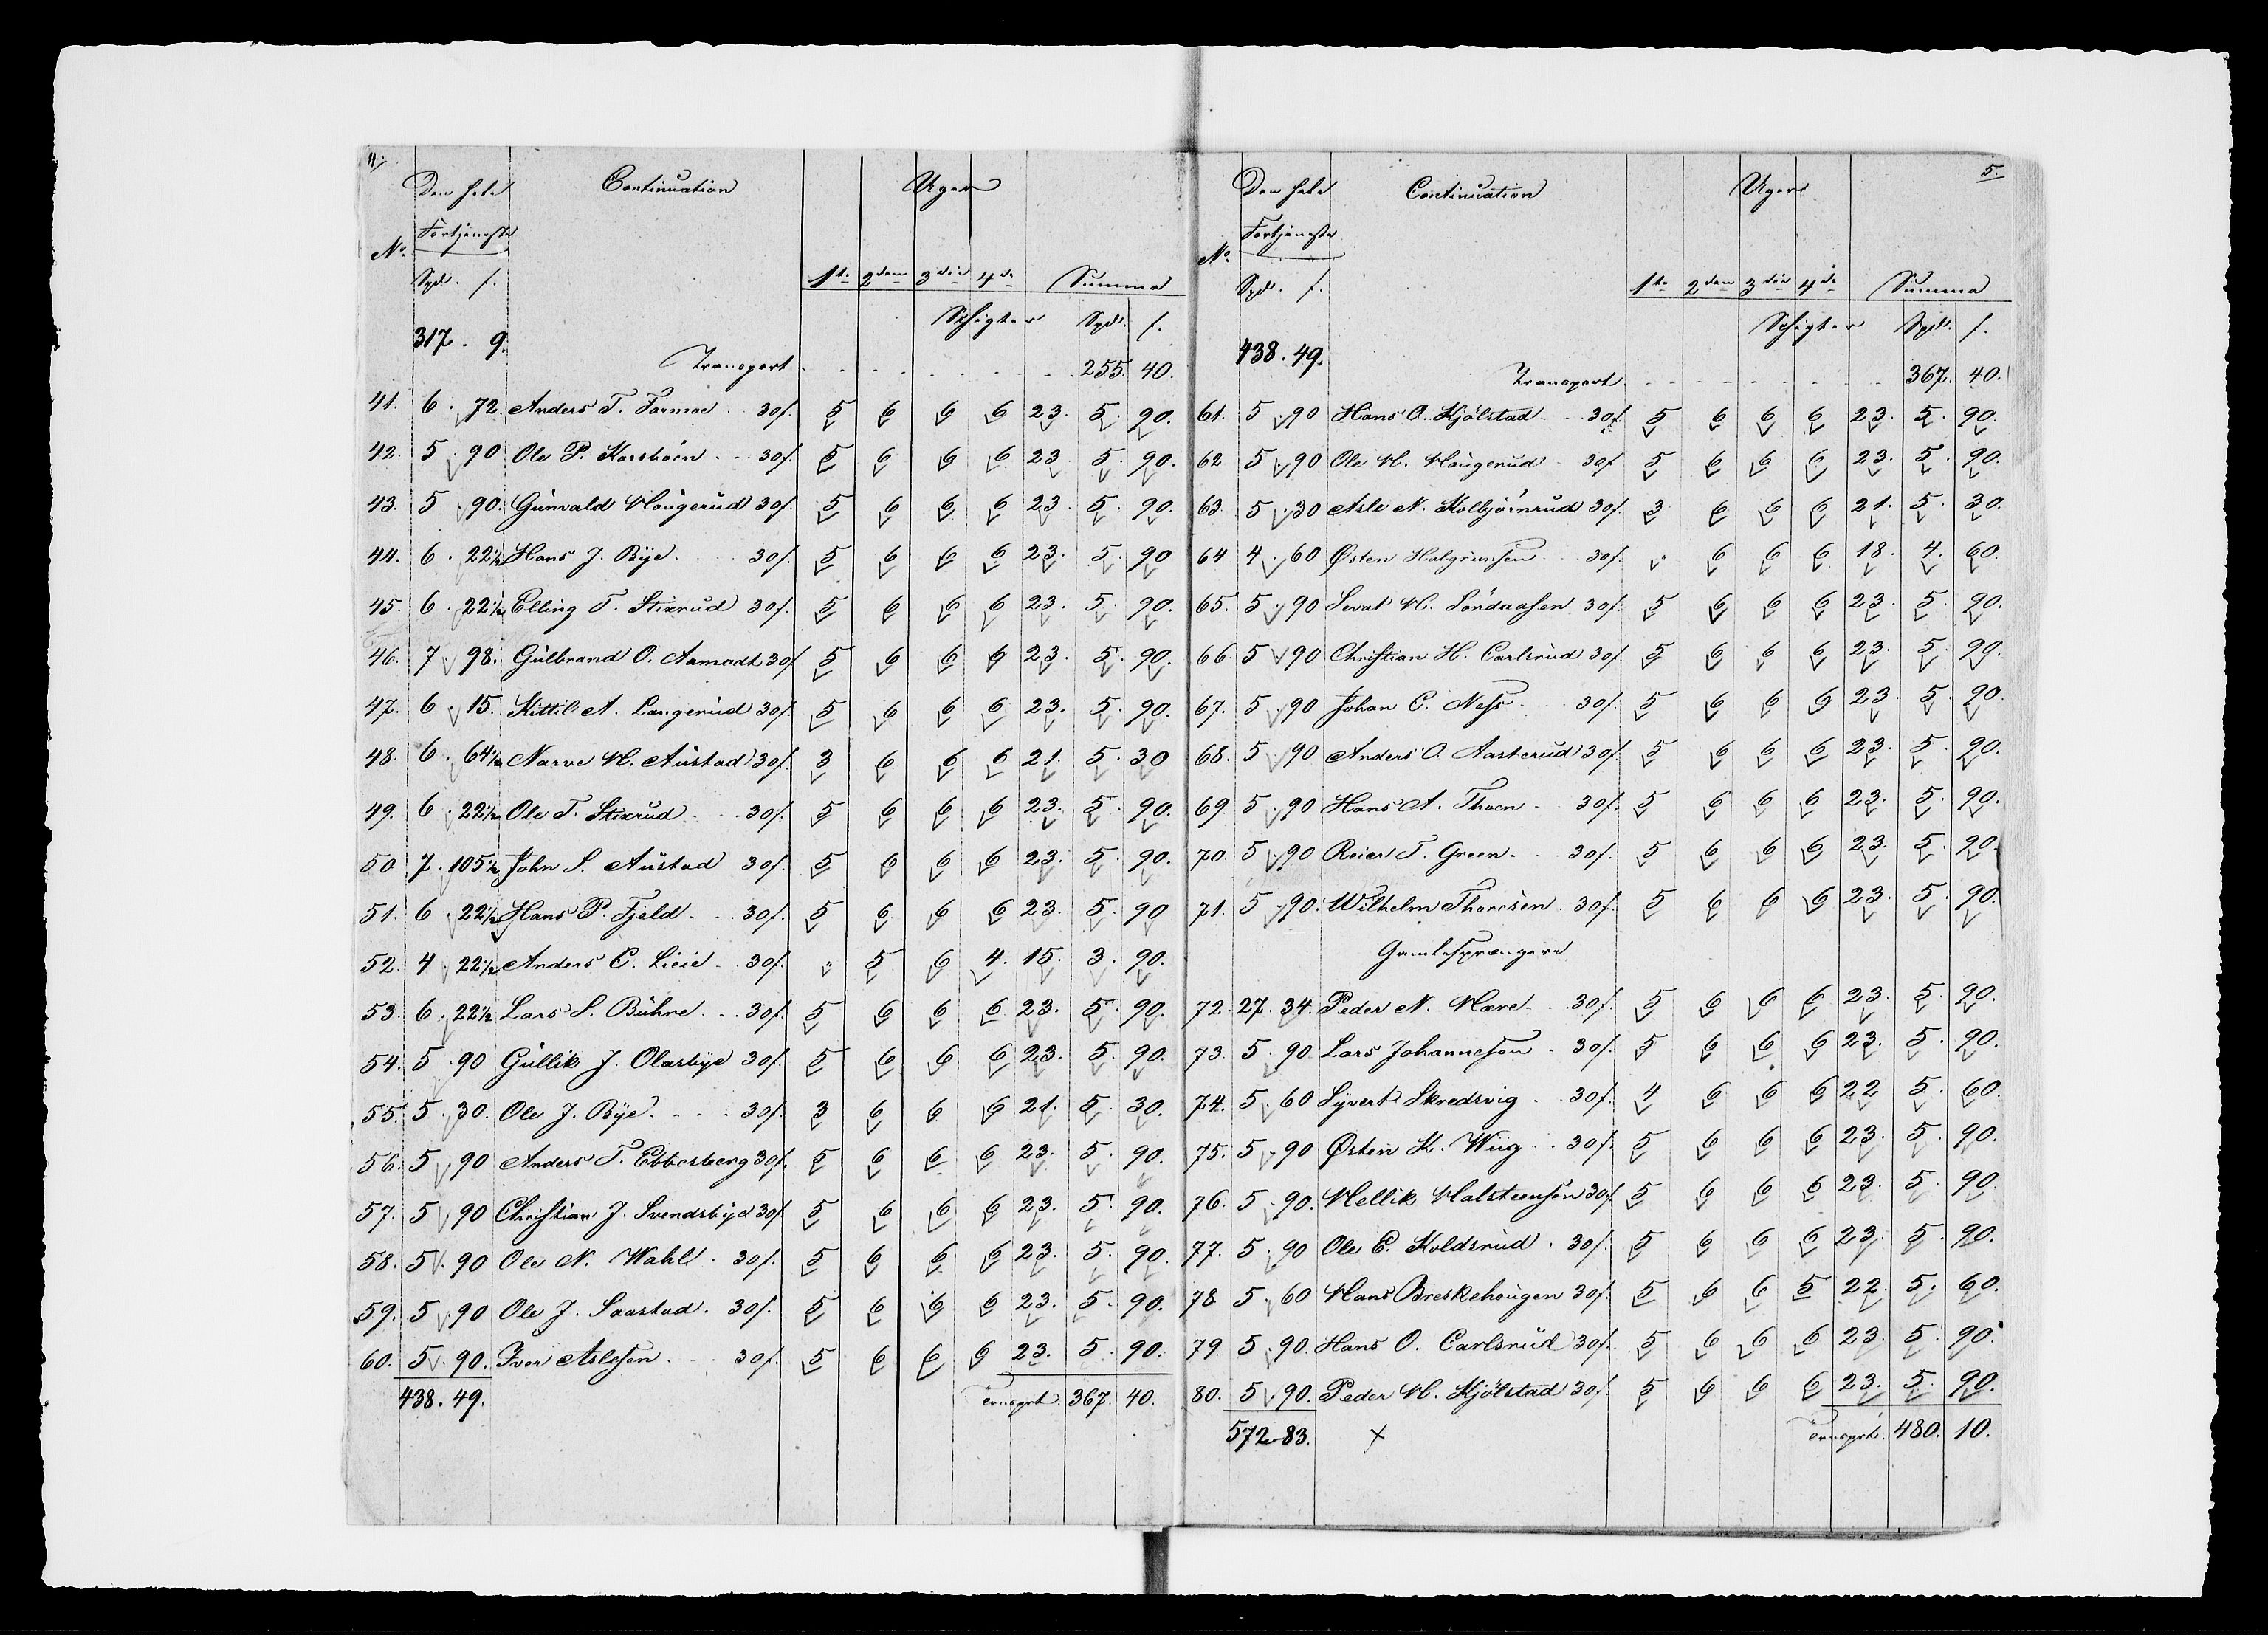 4.
Den hele Continuation Uger
Fortjeneste
No.
Spd. ſ. 1te 2den 3die 4de Summa
Schigter Spd. ſ.
317. 9.
Transport 255. 40.
41. 6. 72. Anders T. Formoe 30ſ. 5 6 6 6 23. 5. 90.
42. 5. 90 Ole P. Korsböen 30ſ. 5 6 6 6 23. 5. 90.
43. 5 90. Gunvald Hougerud 30ſ. 5 6 6 6 23. 5. 90.
44. 6. 22½ Hans J. Bye 30ſ. 5 6 6 6 23. 5. 90
45. 6. 22½ Elling T. Stixrud 30ſ. 5 6 6 6 23. 5. 90.
46. 7 98. Gulbrand O. Aamodt 30ſ. 5 6 6 6 23. 5. 90.
47. 6 15. Kittil A. Langerud 30ſ. 5 6 6 6 23. 5. 90.
48. 6. 64½ Narve H. Austad 30ſ. 3 6 6 6 21. 5. 30
49. 6. 22½ Ole T. Stixrud 30ſ. 5 6 6 6 23. 5. 90.
50 7. 105½ John S. Austad 30ſ. 5 6 6 6 23. 5. 90.
51. 6 22½ Hans P. Fjeld 30ſ. 5 6 6 6 23. 5. 90
52. 4 22½ Anders E. Lieie 30ſ. " 5 6 4. 15. 3. 90.
53. 6. 22½ Lars S. Buhre 30ſ. 5 6 6 6 23. 5. 90.
54. 5. 90 Gullik J. Olasbye 30ſ. 5 6 6 6 23. 5. 90.
55. 5. 30. Ole J. Bye 30ſ. 3 6 6 6 21. 5. 30.
56. 5 90 Anders T. Ebbesberg 30ſ. 5 6 6 6 23. 5. 90.
57. 5 90 Christian J. Svendsbye 30ſ. 5 6 6 6 23. 5. 90.
58. 5. 90 Ole N. Wahl 30ſ. 5 6 6 6 23. 5. 90.
59. 5 90 Ole J. Saastad 30ſ. 5 6 6 6 23. 5. 90.
60. 5. 90. Iver Aslesen 30ſ. 5 6 6 6 23. 5. 90.
438. 49. Trnsprt. 367. 40.
5.
Den hele Continuation Uger
Fortjeneste
No.
Spd. ſ. 1te 2den 3die 4de Summa
Schigter Spd. ſ.
438. 49.
Transport 367. 40.
61. 5 90 Hans O. Kjölstad 30ſ. 5 6 6 6 23. 5. 90.
62 5 90 Ole H. Hougerud 30ſ 5 6 6 6 23. 5. 90.
63. 5. 30 Asle N. Kolbjörnrud 30ſ. 3 6 6 6 21. 5. 30.
64 4. 60 Østen Halgrimsen 30ſ. " 6 6 6 18. 4. 60.
65. 5. 90 Sevat H. Söndaasen 30ſ. 5 6 6 6 23. 5. 90.
66. 5 90 Christian H. Carlsrud 30ſ. 5 6 6 6 23. 5. 90.
67. 5 90 Johan C. Ness 30ſ. 5 6 6 6 23. 5. 90.
68. 5 90 Anders O. Aasterud 30ſ. 5 6 6 6 23. 5. 90.
69. 5. 90 Hans A. Thoen 30ſ. 5 6 6 6 23. 5. 90.
70. 5. 90 Reier T. Green 30ſ. 5 6 6 6 23. 5. 90.
71. 5 90. Wilhelm Thoresen 30ſ. 5 6 6 6 23. 5. 90.
Gamlesprængere
72. 27. 34. Peder N. Mære 30ſ. 5 6 6 6 23. 5. 90.
73. 5. 90 Lars Johannesen 30ſ. 5 6 6 6 23. 5. 90.
74. 5. 60 Syvert Skredsvig 30ſ. 4 6 6 6 22 5. 60.
75. 5. 90 Østen K. Wiig 30ſ. 5 6 6 6 23. 5. 90.
76. 5. 90. Mellik Halsteensen 30ſ. 5 6 6 6 23. 5. 90.
77. 5. 90 Ole E. Koldsrud 30ſ. 5 6 6 6 23. 5. 90.
78 5 60 Hans Breskehougen 30ſ. 5 6 6 5 22. 5. 60.
79. 5. 90. Hans O. Carlsrud 30ſ. 5 6 6 6 23. 5. 90.
80. 5 90. Peder H. Kjölstad 30ſ. 5 6 6 6 23. 5. 90.
572 83. x Trnsprt. 480. 10.